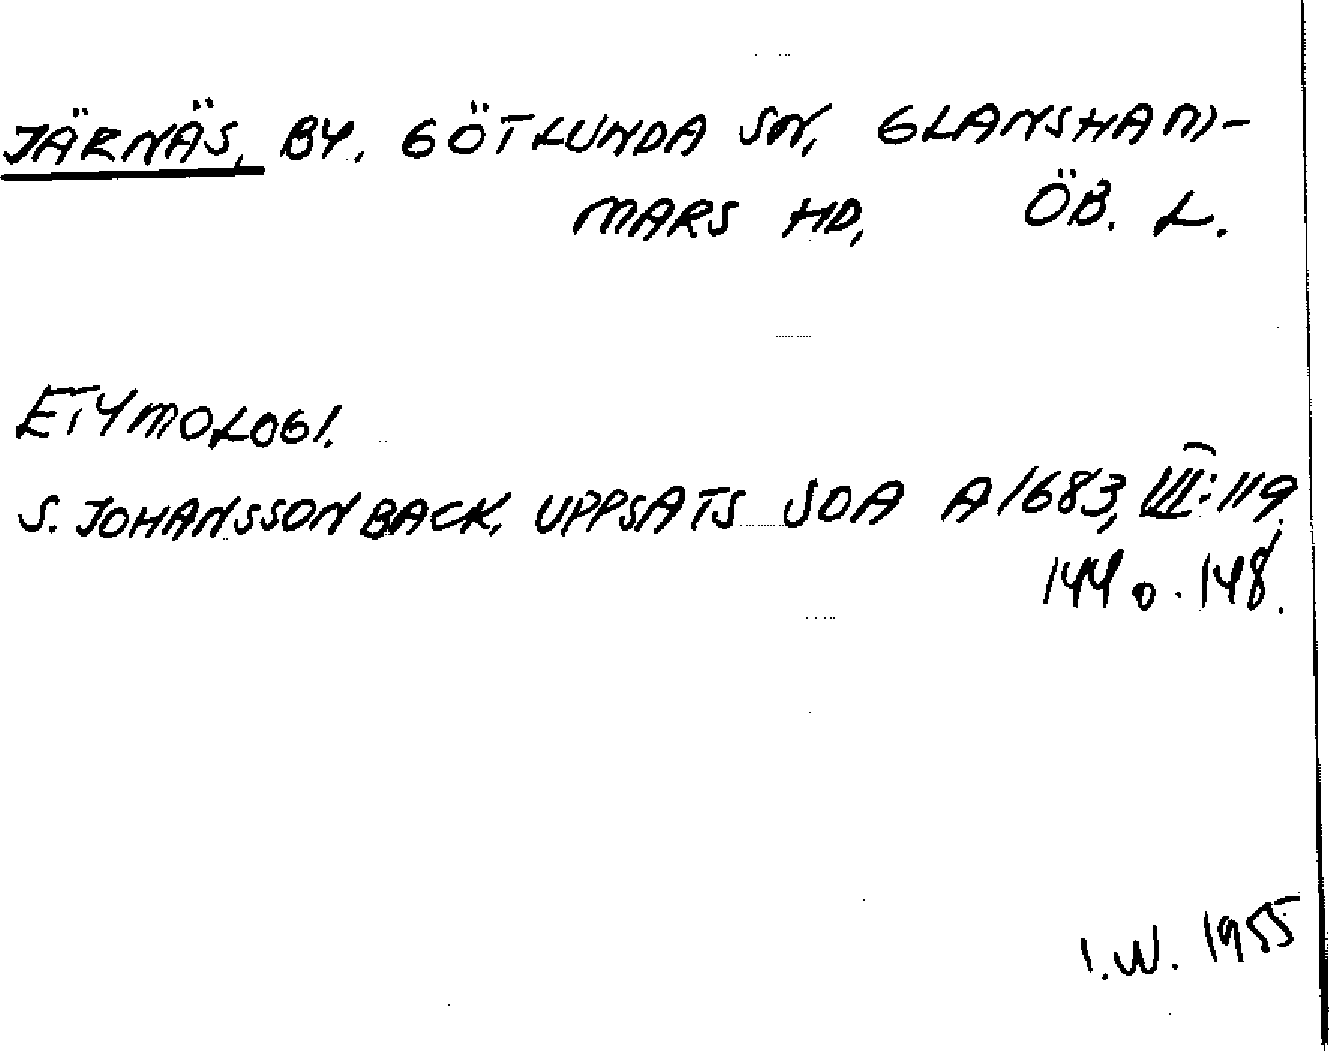 JÄRNÄS, BY. GÖTLUNDA SN, GLANSHAM-
MARS HD, ÖB. L.
ETYMOLOGI.
S. JOHANSSON BACK, UPPSATS SOA A1683, VII:119,
144 o. 148.
I.W. 1955